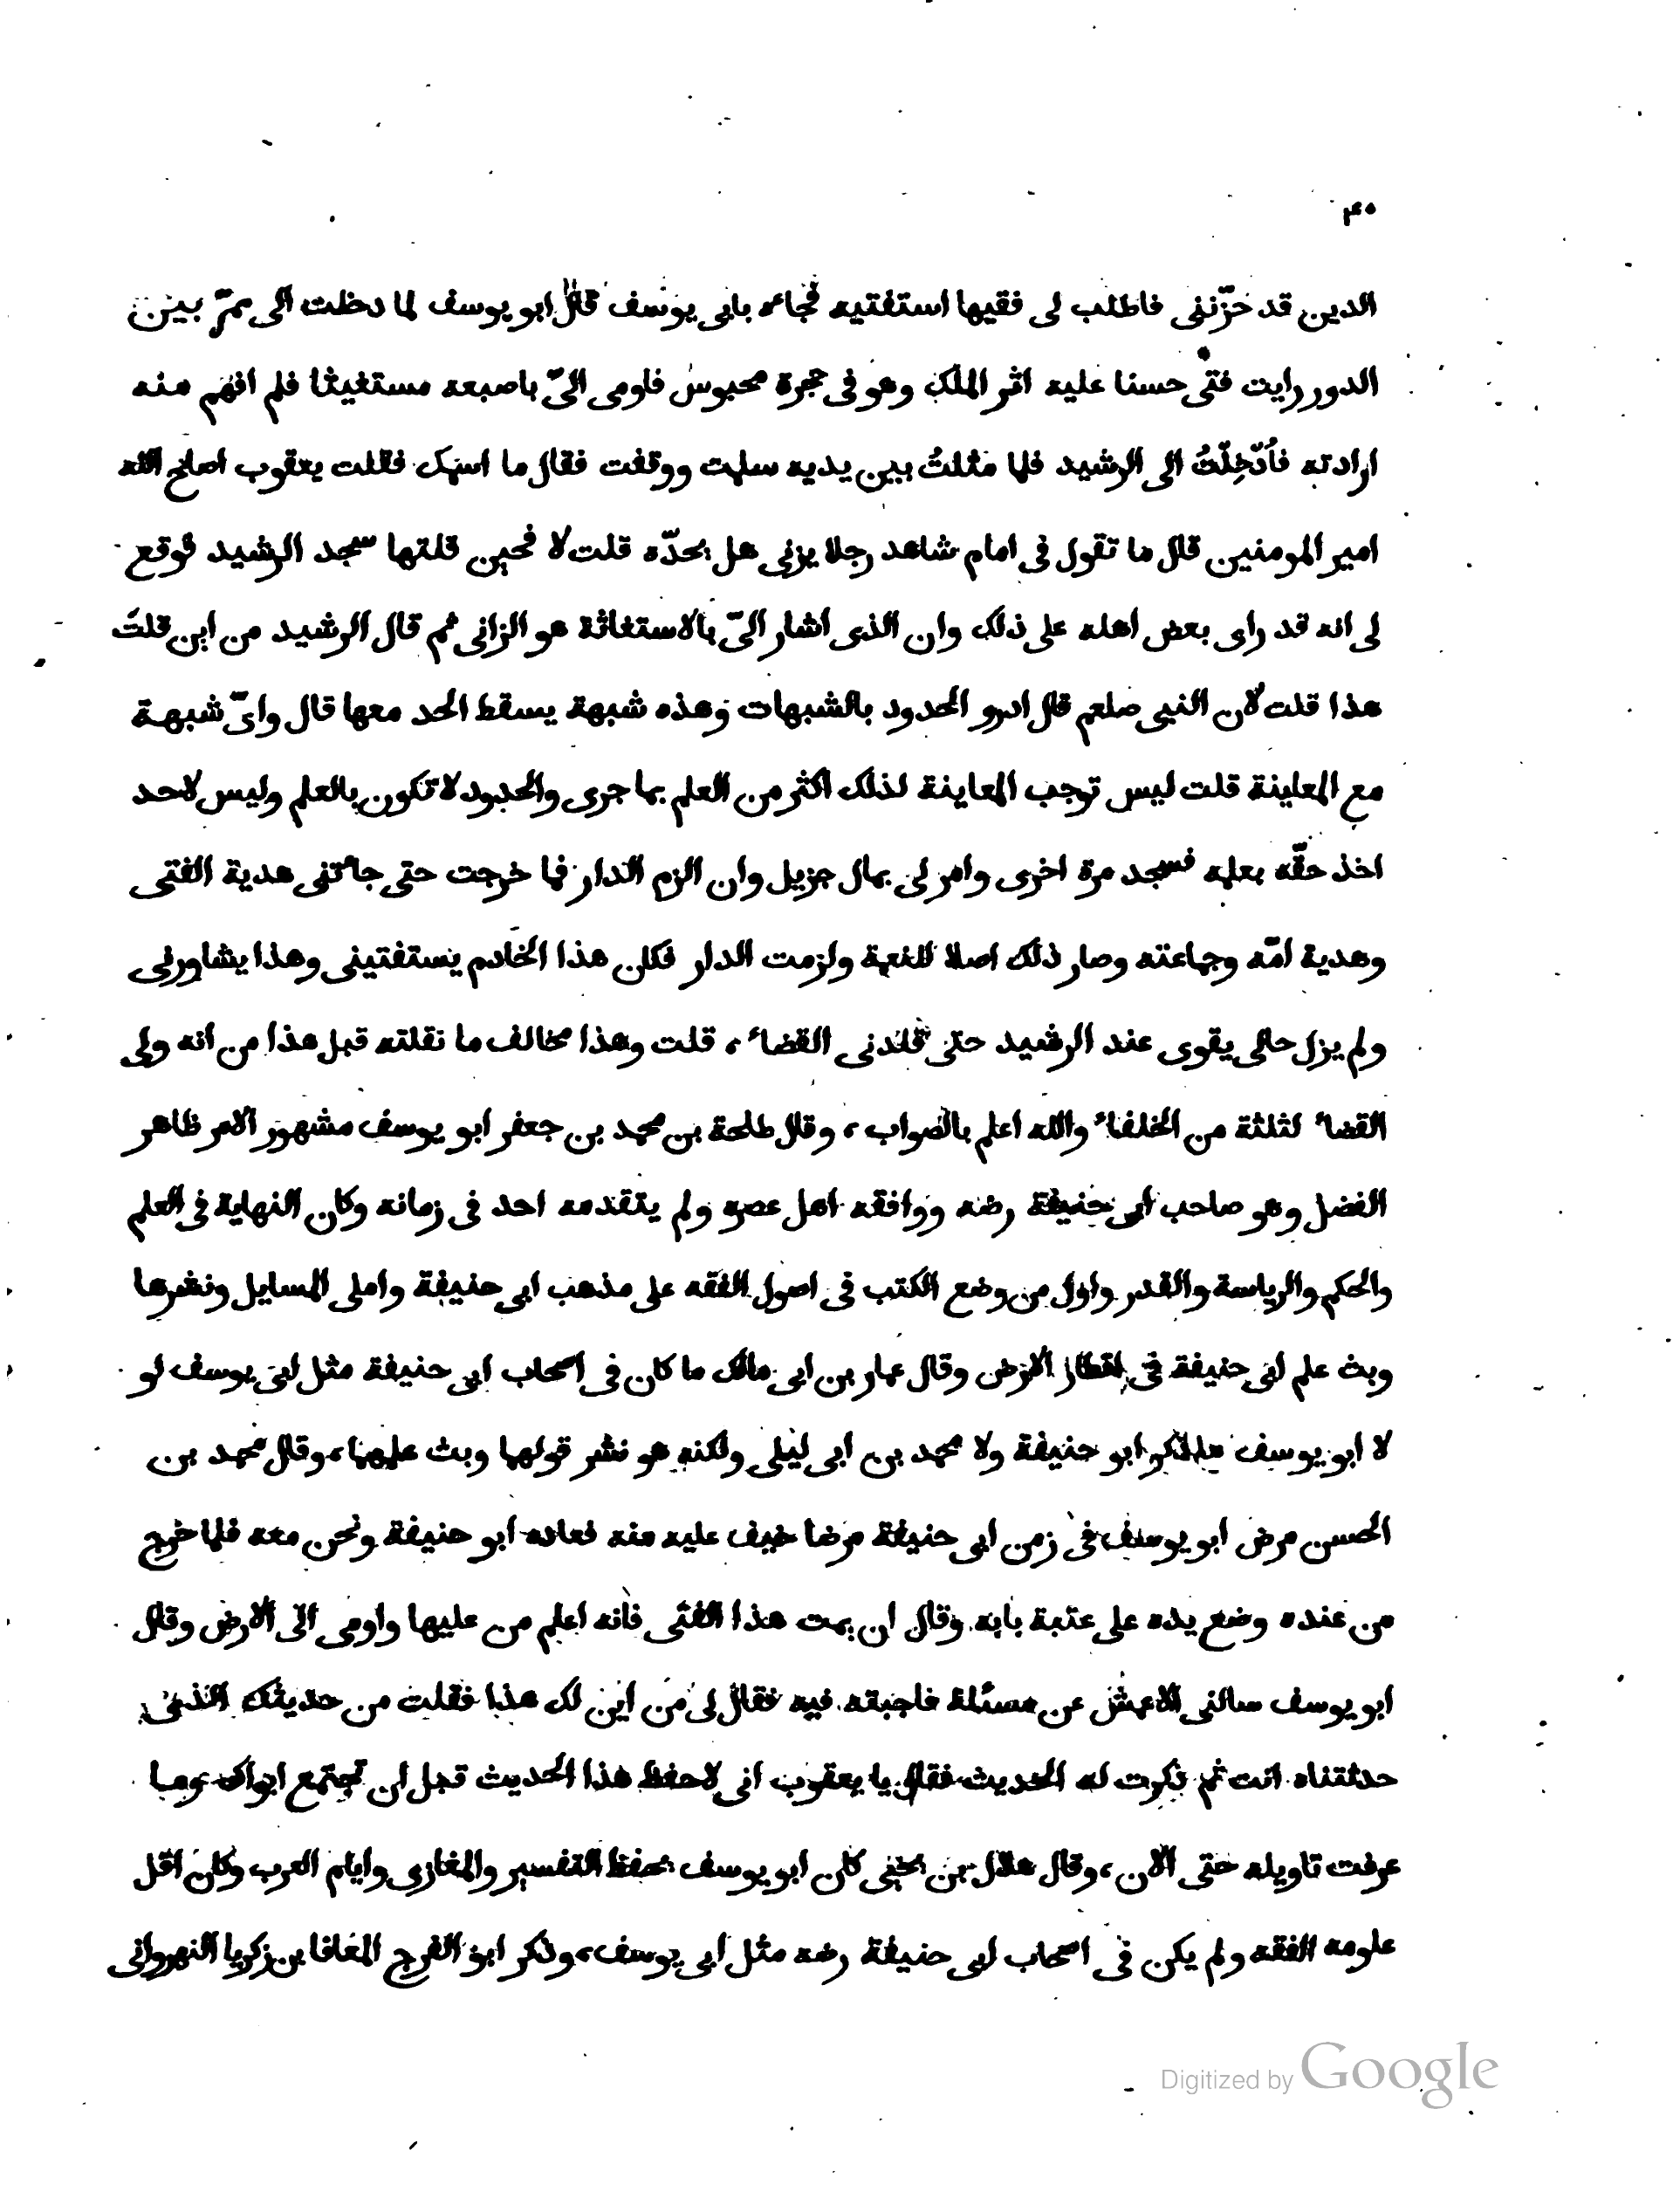 ۴۰
الدين قد حزّننى فاطلب لى فقيها استفتيه فجاءه بابى يوسف قال ابو يوسف لما دخلت الى ممرّ بين
الدور رايت فتى حسنا عليه اثر الملك وهو فى حجرة محبوس فاومى الىّ باصبعه مستغيثا فلم افهم منه
ارادته فأُدْخِلْتُ الى الرشيد فلما مثلتُ بين يديه سلمت ووقفت فقال ما اسمك فقلت يعقوب اصلح الله
امير المومنين قال ما تقول فى امام شاهد رجلا يزنى هل يحدّه قلت لا فحين قلتها سجد الرشيد فوقع
لى انه قد راى بعض اهله على ذلك وان الذى اشار الىّ بالاستغاثة هو الزانى ثم قال الرشيد من اين قلتَ
هذا قلت لان النبى صلعم قال ادرو الحدود بالشبهات وهذه شبهة يسقط الحد معها قال واىّ شبهة
مع المعاينة قلت ليس توجب المعاينة لذلك اكثر من العلم بما جرى والحدود لا تكون بالعلم وليس لاحد
اخذ حقّه بعلمه فسجد مرة اخرى وامر لى بمال جزيل وان الزم الدار فما خرجت حتى جائتنى هدية الفتى
وهدية امّه وجماعته وصار ذلك اصلا للنعمة ولزمت الدار فكان هذا الخادم يستفتينى وهذا يشاورنى
ولم يزل حالى يقوى عند الرشيد حتى قلدنى القضاء، قلت وهذا مخالف ما نقلته قبل هذا من انه ولى
القضاء لثلثة من الخلفاء والله اعلم بالصواب، وقال طلحة بن محمد بن جعفر ابو يوسف مشهور الامر ظاهر
الفضل وهو صاحب ابى حنيفة رضه ووافقه اهل عصره ولم يتقدمه احد فى زمانه وكان النهاية فى العلم
والحكم والرياسة والقدر واول من وضع الكتب فى اصول الفقه على مذهب ابى حنيفة واملى المسايل ونشرها
وبث علم ابى حنيفة فى اقطار الارض وقال عمار بن ابى مالك ما كان فى اصحاب ابى حنيفة مثل ابى يوسف لو
لا ابو يوسف ما ذكر ابو حنيفة ولا محمد بن ابى ليلى ولكنه هو نشر قولهما وبث علمهما، وقال محمد بن
الحسن مرض ابو يوسف فى زمن ابى حنيفة مرضا خيف عليه منه فعاده ابو حنيفة ونحن معه فلما خرج
من عنده وضع يده على عتبة بابه وقال ان يمت هذا الفتى فانه اعلم من عليها واومى الى الارض وقال
ابو يوسف سالنى الاعمش عن مسئلة فاجبته فيه فقال لى من اين لك هذا فقلت من حديثك الذى
حدثتناه انت ثم ذكرت له الحديث فقال يا يعقوب انى لاحفظ هذا الحديث قبل ان تجتمع ابواك وما
عرفت تاويله حتى الان، وقال هلال بن يحيى كان ابو يوسف يحفظ التفسير والمغازى وايام العرب وكان اقل
علومه الفقه ولم يكن فى اصحاب ابى حنيفة رضه مثل ابى يوسف، وذكر ابو الفرج المعافا بن زكريا النهروانى
Digitized by Google